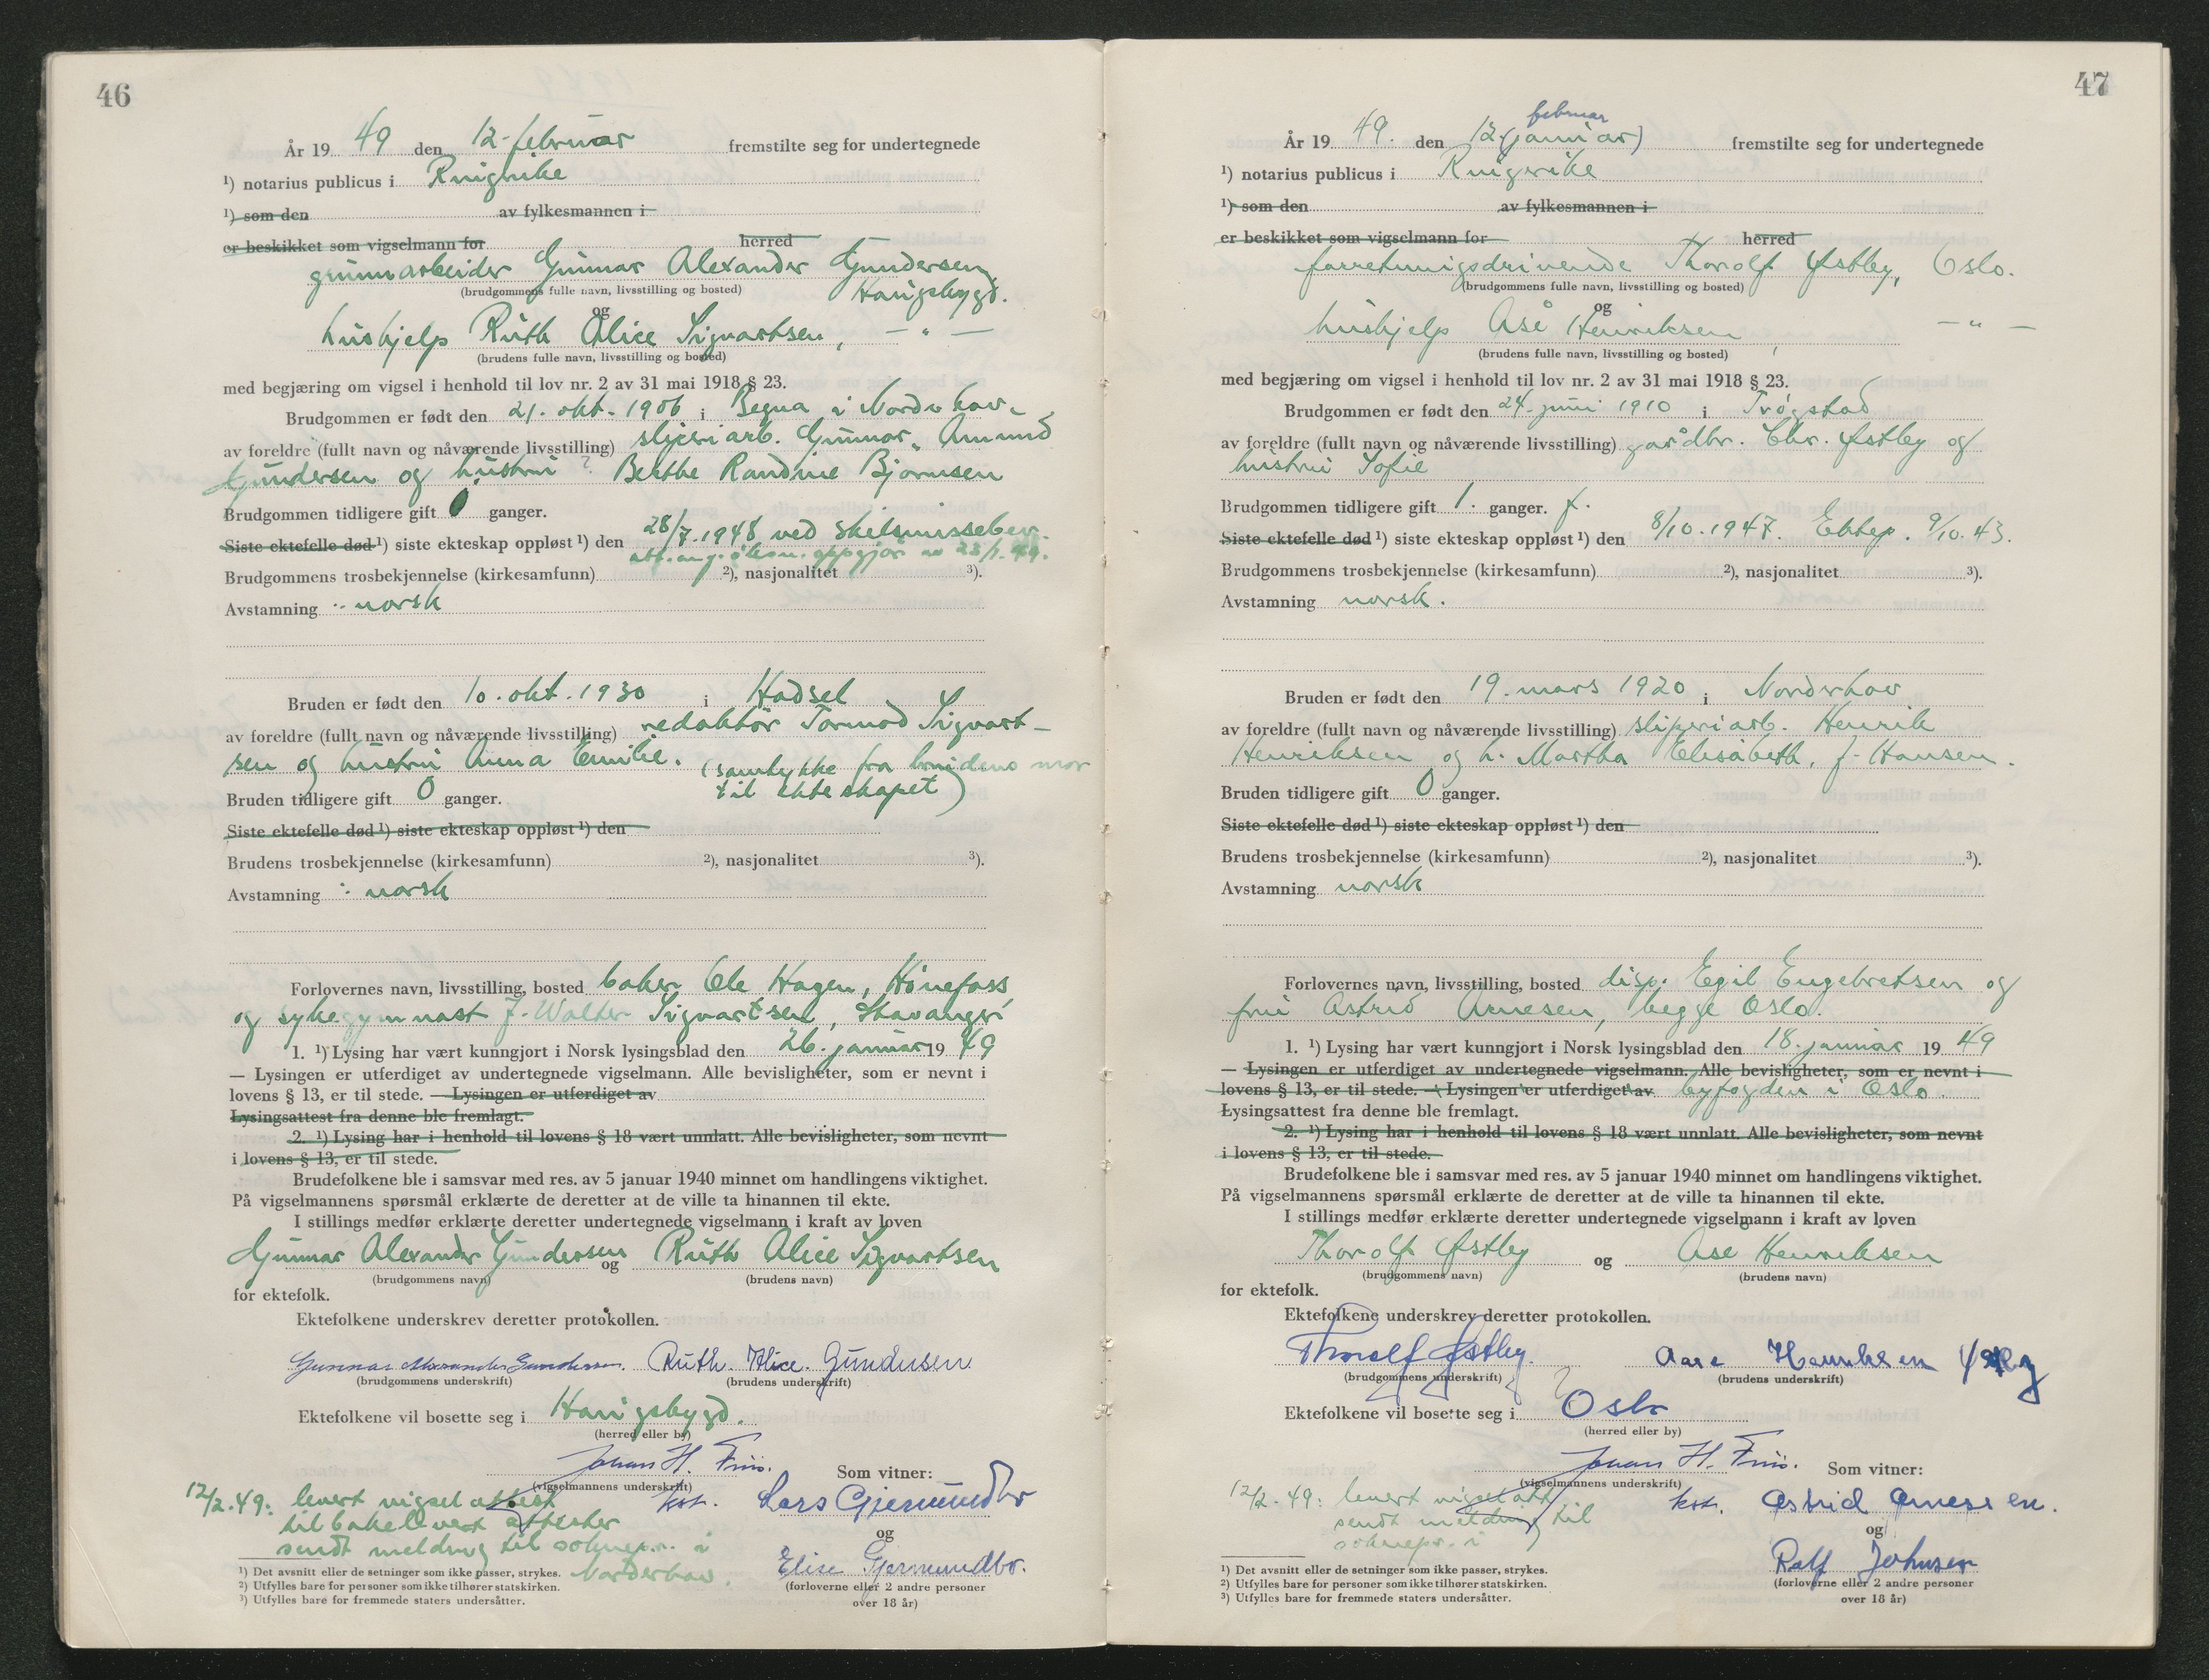 46
År 19 49 den 12. februar fremstilte seg for undertegnede
¹) notarius publicus i Ringerike
¹) som den av fylkesmannen i
er beskikket som vigselmann for herred
Gunnar Alexander Gundersen,
(brudgommens fulle navn, livsstilling og bosted)
og
hushjelp Ruth Alice Sigvartsen, – " –
(brudens fulle navn, livsstilling og bosted)
med begjæring om vigsel i henhold til lov nr. 2 av 31 mai 1918 § 23.
Brudgommen er født den 21. okt. 1906 i Begna i Norderhov
av foreldre (fullt navn og nåværende livsstilling) sliperiarb. Gunnar Amund
Gundersen og hustru ? Berthe Randine Bjørnsen
Brudgommen tidligere gift 0 ganger.
28/7.1948 ved skilsmissebev.
Siste ektefelle død ¹) siste ekteskap oppløst ¹) den
oppgjør av 28/1.49.
Brudgommens trosbekjennelse (kirkesamfunn) ²), nasjonalitet ³).
Avstamning : norsk
Bruden er født den 10. okt. 1930 i Hadsel
av foreldre (fullt navn og nåværende livsstilling) redaktör Tormod Sigvart-
sen og hustru Anna Emilie. (samtykke fra brudens mor
Bruden tidligere gift 0 ganger. til ekteskapet)
Siste ektefelle død ¹) siste ekteskap oppløst ¹) den
Brudens trosbekjennelse (kirkesamfunn) ²), nasjonalitet ³).
Avstamning : norsk
Forlovernes navn, livsstilling, bosted baker Ole Hagen, Hönefoss
og sykegymnast J. Walter Sigvartsen, Stavanger
1. ¹) Lysing har vært kunngjort i Norsk lysingsblad den 26. januar 19 49
— Lysingen er utferdiget av undertegnede vigselmann. Alle bevisligheter, som er nevnt i
lovens § 13, er til stede. — Lysingen er utferdiget av
Lysingsattest fra denne ble fremlagt.
2. ¹) Lysing har i henhold til lovens § 18 vært unnlatt. Alle bevisligheter, som nevnt
i lovens § 13, er til stede.
Brudefolkene ble i samsvar med res. av 5 januar 1940 minnet om handlingens viktighet.
På vigselmannens spørsmål erklærte de deretter at de ville ta hinannen til ekte.
I stillings medfør erklærte deretter undertegnede vigselmann i kraft av loven
Gunnar Alexander Gundersen og Ruth Alice Sigvartsen
(brudgommens navn) (brudens navn)
for ektefolk.
Ektefolkene underskrev deretter protokollen.
Gunnar Alexander Gundersen. Ruth. Alice. Gundersen
(brudgommens underskrift) (brudens underskrift)
Ektefolkene vil bosette seg i Haugsbygd.
(herred eller by)
Johan H.
(vigselmannens underskrift) Som vitner:
12/2.49: levert vigselattest Lars Gjermundbo
tilbakelevert attester og
sendt melding til soknepr. i Elise Gjermundbo.
Norderhov. (forloverne eller 2 andre personer
over 18 år)
¹) Det avsnitt eller de setninger som ikke passer, strykes.
²) Utfylles bare for personer som ikke tilhører statskirken.
³) Utfylles bare for fremmede staters undersåtter.
47
februar
År 19 49. den 12 (januar) fremstilte seg for undertegnede
¹) notarius publicus i Ringerike
¹) som den av fylkesmannen i
er beskikket som vigselmann for herred
forretningsdrivende Thorolf Østby, Oslo.
(brudgommens fulle navn, livsstilling og bosted)
og
hushjelp Åse Henriksen, – " –
(brudens fulle navn, livsstilling og bosted)
med begjæring om vigsel i henhold til lov nr. 2 av 31 mai 1918 § 23.
Brudgommen er født den 24. juni 1910 i Trögstad
av foreldre (fullt navn og nåværende livsstilling) gårdbr. Chr. Østby og
hustru Sofie
Brudgommen tidligere gift 1. ganger. f.
Siste ektefelle død ¹) siste ekteskap oppløst ¹) den 8/10.1947. Ektep. 9/10.43.
Brudgommens trosbekjennelse (kirkesamfunn) ²), nasjonalitet ³).
Avstamning norsk.
Bruden er født den 19. mars 1920 i Norderhov
av foreldre (fullt navn og nåværende livsstilling) sliperiarb. Henrik
Henriksen og h. Martha Elisabeth, f. Hansen.
Bruden tidligere gift 0 ganger.
Siste ektefelle død ¹) siste ekteskap oppløst ¹) den
Brudens trosbekjennelse (kirkesamfunn) ²), nasjonalitet ³).
Avstamning norsk
Forlovernes navn, livsstilling, bosted disp. Egil Engebretsen og
fru Astrid Arnesen, begge Oslo.
1. ¹) Lysing har vært kunngjort i Norsk lysingsblad den 18. januar 19 49
— Lysingen er utferdiget av undertegnede vigselmann. Alle bevisligheter, som er nevnt i
lovens § 13, er til stede. — Lysingen er utferdiget av byfogden i Oslo.
Lysingsattest fra denne ble fremlagt.
2. ¹) Lysing har i henhold til lovens § 18 vært unnlatt. Alle bevisligheter, som nevnt
i lovens § 13, er til stede.
Brudefolkene ble i samsvar med res. av 5 januar 1940 minnet om handlingens viktighet.
På vigselmannens spørsmål erklærte de deretter at de ville ta hinannen til ekte.
I stillings medfør erklærte deretter undertegnede vigselmann i kraft av loven
Thorolf Østby og Åse Henriksen
(brudgommens navn) (brudens navn)
for ektefolk.
Ektefolkene underskrev deretter protokollen.
Thorolf Østby. Aase Henriksen Østby
(brudgommens underskrift) (brudens underskrift)
Ektefolkene vil bosette seg i Oslo
(herred eller by)
Johan H.
(vigselmannens underskrift) Som vitner:
12/2.49: levert vigselatt. Astrid Arnesen.
sendt melding til og
soknepr. i Rolf Johnsen
(forloverne eller 2 andre personer
over 18 år)
¹) Det avsnitt eller de setninger som ikke passer, strykes.
²) Utfylles bare for personer som ikke tilhører statskirken.
³) Utfylles bare for fremmede staters undersåtter.